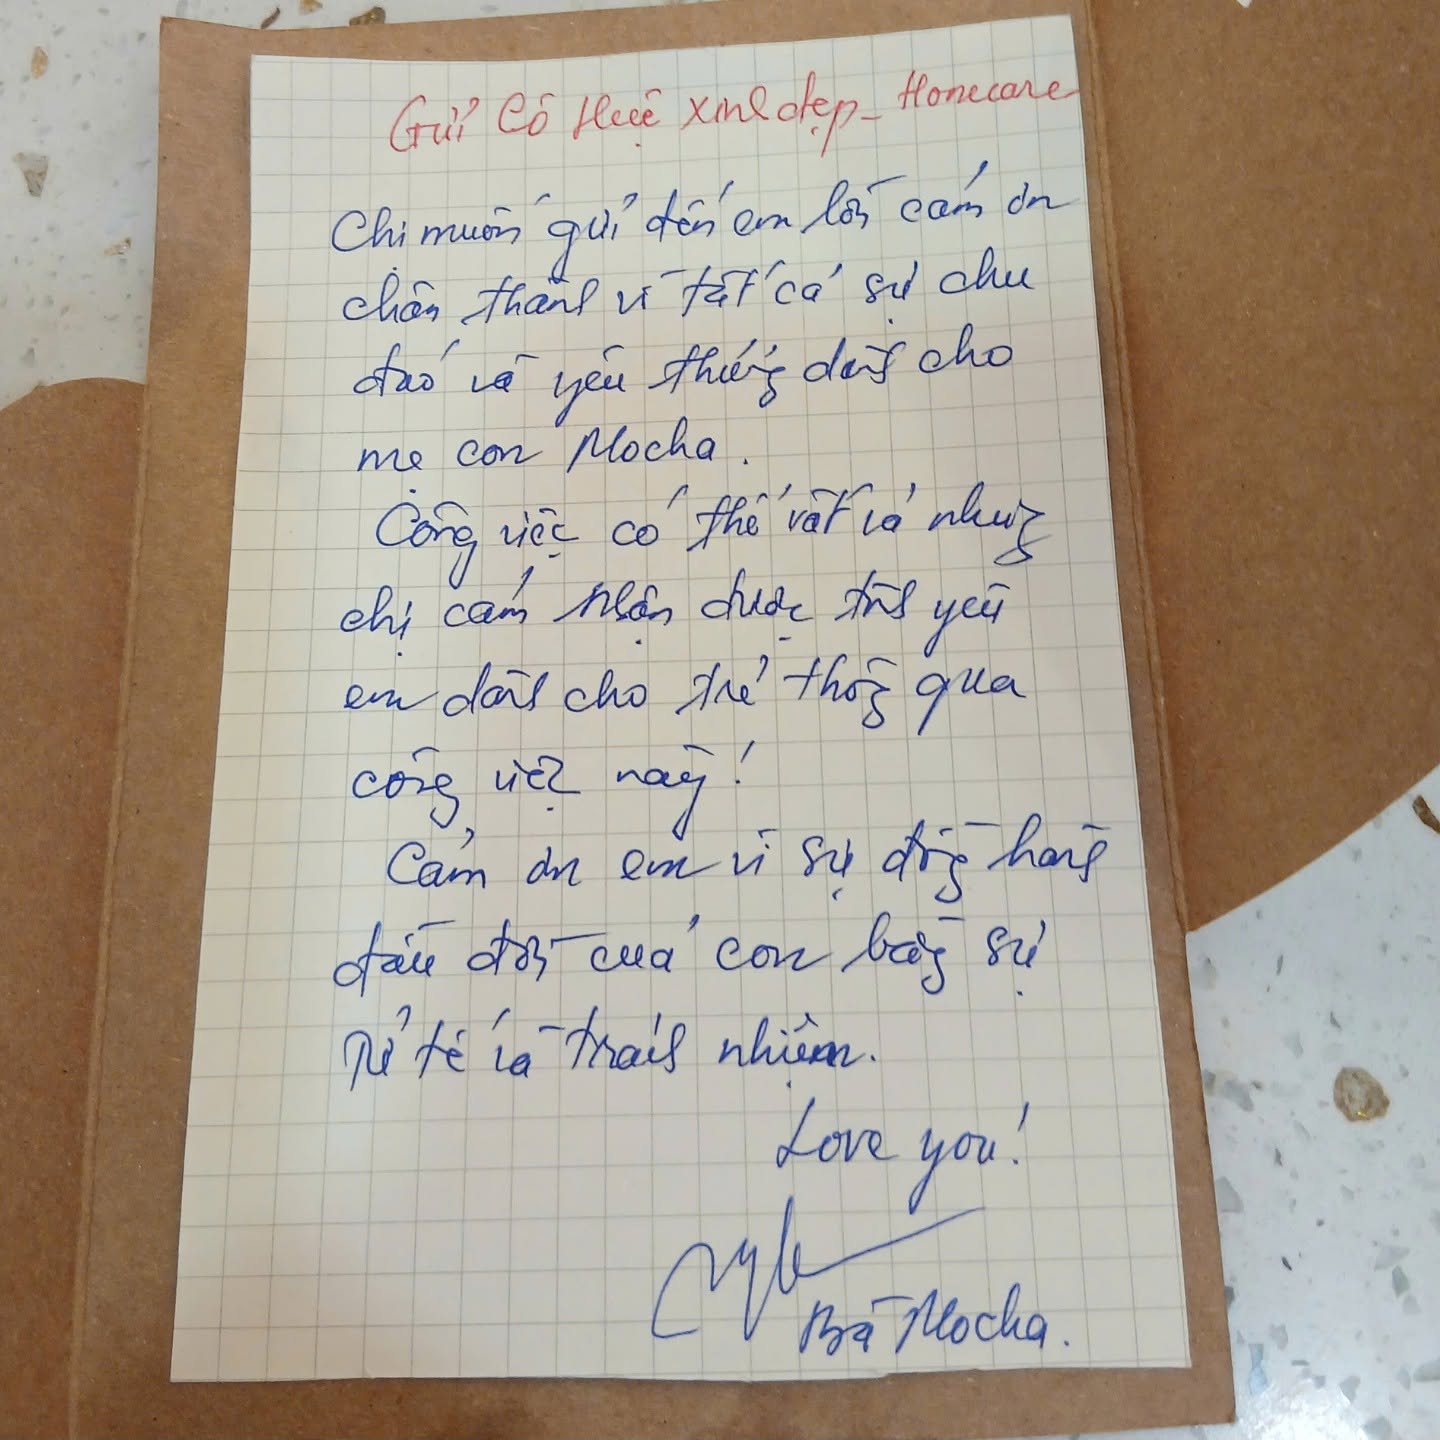 Gửi Cô Huệ xinh đẹp - Homecare
Chị muốn gửi đến em lời cám ơn
chân thành vì tất cả sự chu
đáo và yêu thương dành cho
mẹ con Mocha.
Công việc có thể vất vả nhưng
chị cảm nhận được tình yêu
em dành cho trẻ thông qua
công việc này!
Cảm ơn em vì sự đồng hành
đầu đời của con bằng sự
tử tế và trách nhiệm.
Love you!
Bà Mocha.